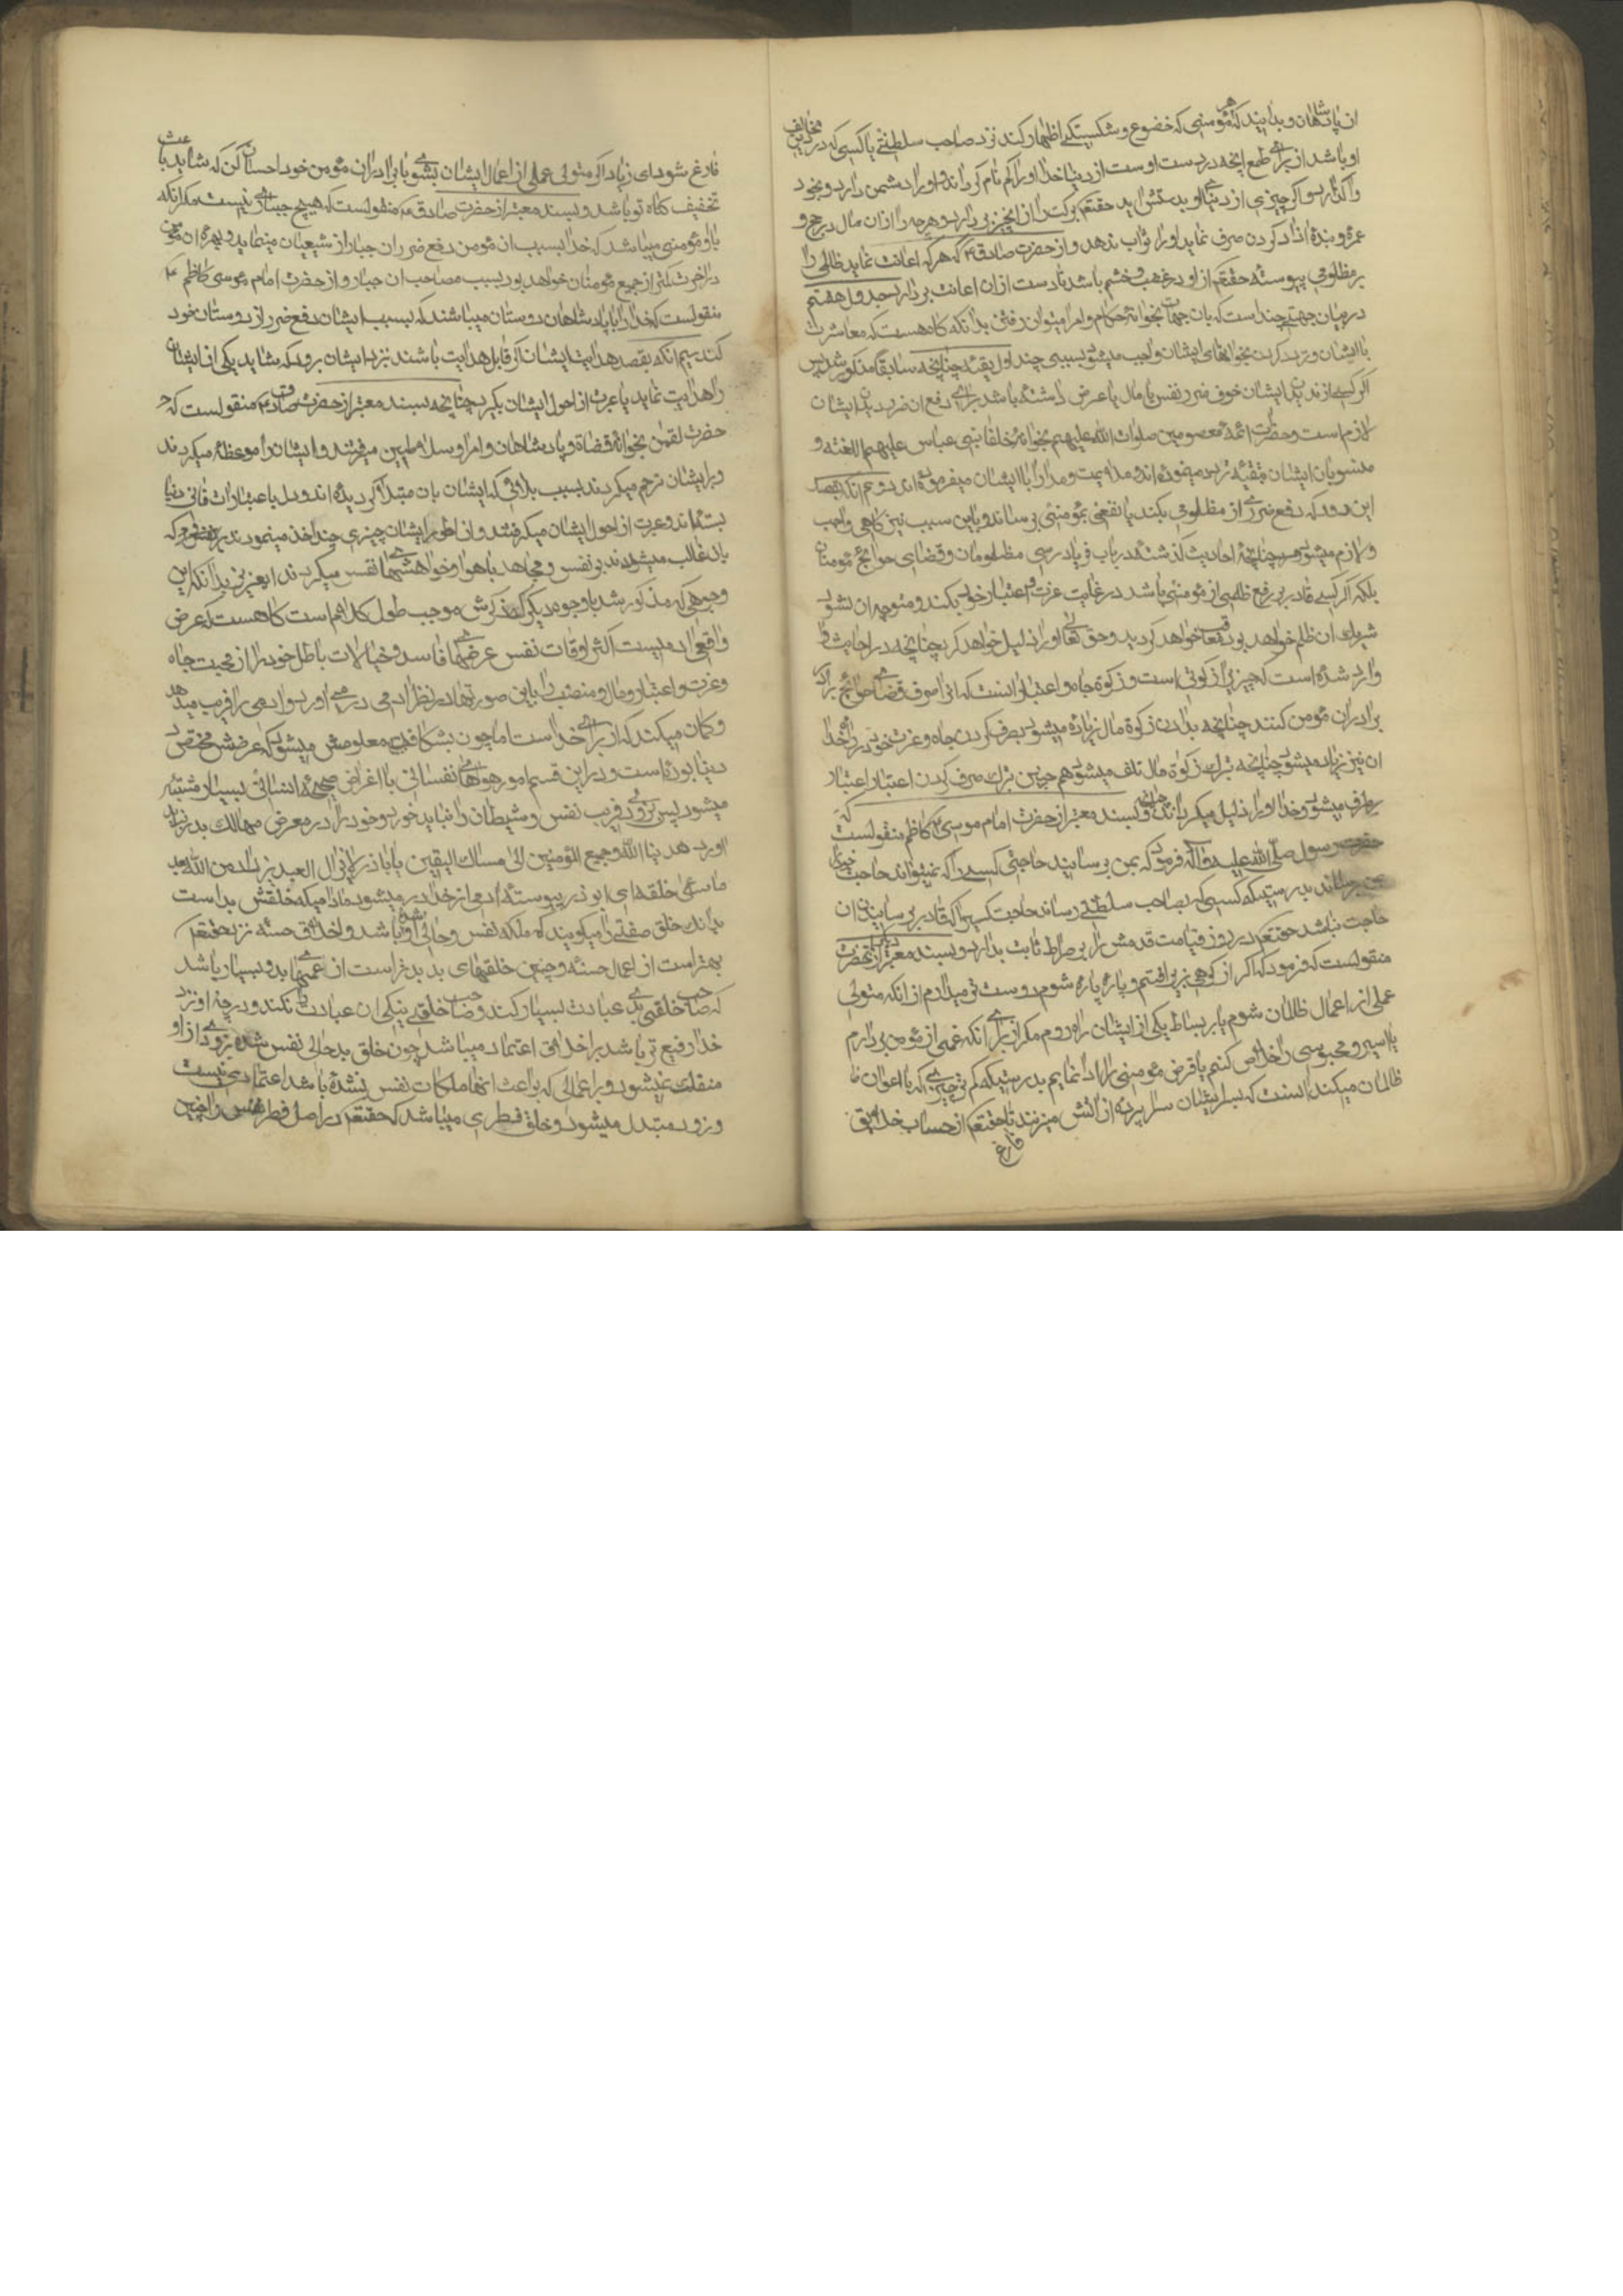 ان پادشاهان و بدانید که هر مؤمنی که خضوع و شکستگی اظهار کند نزد صاحب سلطنتی یا کسی که در دین مخالف
او باشد از برای طمع انچه در دست اوست از دنیا خدا او را کم نام کرداند و او را دشمن دارد و بخود
واکذارد و اکر چیزی از دنیای او بدستش اید حقتعم برکت را از انچیز بر دارد و هرچه را از ان مال در حج و
عمره و بنده ازاد کردن صرف نماید او را ثواب ندهد و از حضرت صادق ۴ که هرکه اعانت نماید ظالمی را
بر مظلومی پیوسته حقتعم از او در غضب و خشم باشد تا دست از ان اعانت بر دارد جدول هشتم
در بیان جهتی چند است که بان جهات بخوانه حکام و امرا میتوان رفتن بدانکه کاه هست که معاشرت
با ایشان و تردد کردن بخوانهای ایشان واجب میشود بسببی چند اول تقیه چنانچه سابقا مذکور شد پس
اکر کسی از ندیدن ایشان خوف ضرر نفس یا مال یا عرض داشته باشد برای دفع ان ضرر دیدن ایشان
لازم است و حضرات ائمه معصومین صلوات الله علیهم بخوانه خلفا بنی عباس علیهم اللعنه و
منسوبان ایشان بتقیه تردد مینموده اند و مداهنت و مدارا با ایشان میفرموده اند دوم انکه بقصد
این رود که دفع ضرری از مظلومی بکند یا نفعی بمؤمنی برساند و باین سبب نیز کاهی واجب
و لازم میشود چنانچه احادیث کذشته در باب فریادرسی مظلومان و قضای حوائج مؤمنان
بلکه اکر کسی قادر بر رفع ظلمی از مؤمنی باشد در غایت عزت و اعتبار خود بکند و متوجه ان نشود
شریک ان ظلم خواهد بود خواهد کردید و حق تعالی او را ذلیل خواهد کرد چنانچه در احادیث
وارد شده است که چیزیرا زکوتی است و زکوة جاه و اعتبار انست که انرا صرف قضای حوائج
برادران مؤمن کنند چنانچه بدادن زکوة مال زیاده میشود بصرف کردن جاه و عزت خود در راه خدا
ان نیز زیاد میشود چنانچه بترک زکوة مال تلف میشود همچنین بترک صرف کردن اعتبار اعتبار
بر طرف میشود و خدا او را ذلیل میکرداند و بسند معتبر از حضرت امام موسی کاظم منقولست که
حضرت رسول صلی الله علیه و اله فرمود که بمن برسانید حاجتی کسی را که نمیتواند حاجت خود را
بمن برساند بدرستیکه کسی که بصاحب سلطنتی رساند حاجت کسیرا که قادر بر رسانیدن ان
حاجت نباشد حقتعم در روز قیامت قدمش را بر صراط ثابت بدارد و بسند معتبر از حضرت
منقولست که فرمود که اکر از کوهی بزیر افتم و پاره پاره شوم دوست تر میدارم از انکه متولی
عملی از اعمال ظالمان شوم یا بر بساط یکی از ایشان راه روم مکر از برای انکه غمی از مؤمن بر دارم
یا اسیر و محبوسی را خلاص کنم یا قرض مؤمنی را ادا نمایم بدرستیکه کم تر چیزی که با اعوان
ظالمان میکند انست که بر ایشان سراپرده از اتش میزنند تا حقتعم از حساب خلایق
فارغ
فارغ شود ای زیاد اکر متولی عملی از اعمال ایشان بشوی با برادران مؤمن خود احسان کن که شاید باعث
تخفیف کناه تو باشد و بسند معتبر از حضرت صادق ۴ منقولست که هیچ جباری نیست مکر انکه
با او مؤمنی میباشد که خدا بسبب ان مؤمن دفع ضرر ان جبار از شیعیان مینماید و بهره ان مؤمن
در اخرت کمتر از جمیع مؤمنان خواهد بود بسبب مصاحب ان جبار و از حضرت امام موسی کاظم ۴
منقولست که خدا را با پادشاهان دوستان میباشند که بسبب ایشان دفع ضرر از دوستان خود
کند سیم انکه بقصد هدایت ایشان اکر قابل هدایت باشند نزد ایشان رود که شاید یکی از ایشان
را هدایت نماید یا عبرت از احوال ایشان بکیرد چنانچه بسند معتبر از حضرت صادق ۴ منقولست که
حضرت لقمن بخوانه قضاة و پادشاهان و امرا و سلاطین میرفتند و ایشان را موعظه میکردند
و بر ایشان ترحم میکردند بسبب بلائی که ایشان بان مبتلا کردیده اند و دل باعتبارات فانی دنیا
بسته اند و عبرت از احوال ایشان میکرفتند و از اطوار ایشان چیزی چند اخذ مینمودند که
بان غالب میشدند بر نفس و مجاهده با هوا و خواهشهای نفس میکردند ای عزیز بدانکه این
وجوهی که مذکور شد با وجوه دیکر که ذکرش موجب طول کلام است کاه هست که عرض
واقعی ادمیست اکثر اوقات نفس عرضهای فاسد و خیالات باطل خود را از محبت جاه
و عزت و اعتبار و مال و منصب را باین صورتها در نظر ادمی در می اورد و ادمی را فریب میدهد
و کمان میکند که از برای خداست اما چون بشکافی معلومش میشود که غرضش محض
دنیا بوده است و در این قسم امور هواهای نفسانی با اغراض صحیحه انسانی بسیار مشتبه
میشود پس بزودی فریب نفس و شیطان را نباید خورد و خود را در معرض مهالک بدر نباید
اورد هدینا الله و جمیع المؤمنین الی مسالک الیقین یا باذر لایزال العبد یزداد من الله بعد
ما ساء خلقه ای ابوذر پیوسته ادمی از خدا دور میشود مادامیکه خلقش بد است
بدانکه خلق صفتی را میکویند که ملکه نفس و حالی او شده باشد و اخلاق حسنه نزد حقتعم
بهتر است از اعمال حسنه و چنین خلقهای بد بدتر است از عملهای بد و بسیار باشد
که صاحب خلقی بد عبادت بسیار کند و صاحب خلق نیکی ان عبادت را نکند و درجه او نزد
خدا رفیع تر باشد بر اخلاق اعتماد میباشد چون خلق بد حالی نفس شده بزودی از او
منفک نمیشود و بر اعمالی که بواعث انها ملکات نفس نشده باشد اعتمادی نیست
و زود متبدل میشود و خلق فطری میباشد که حقتعم در اصل فطرت نفس را چنین